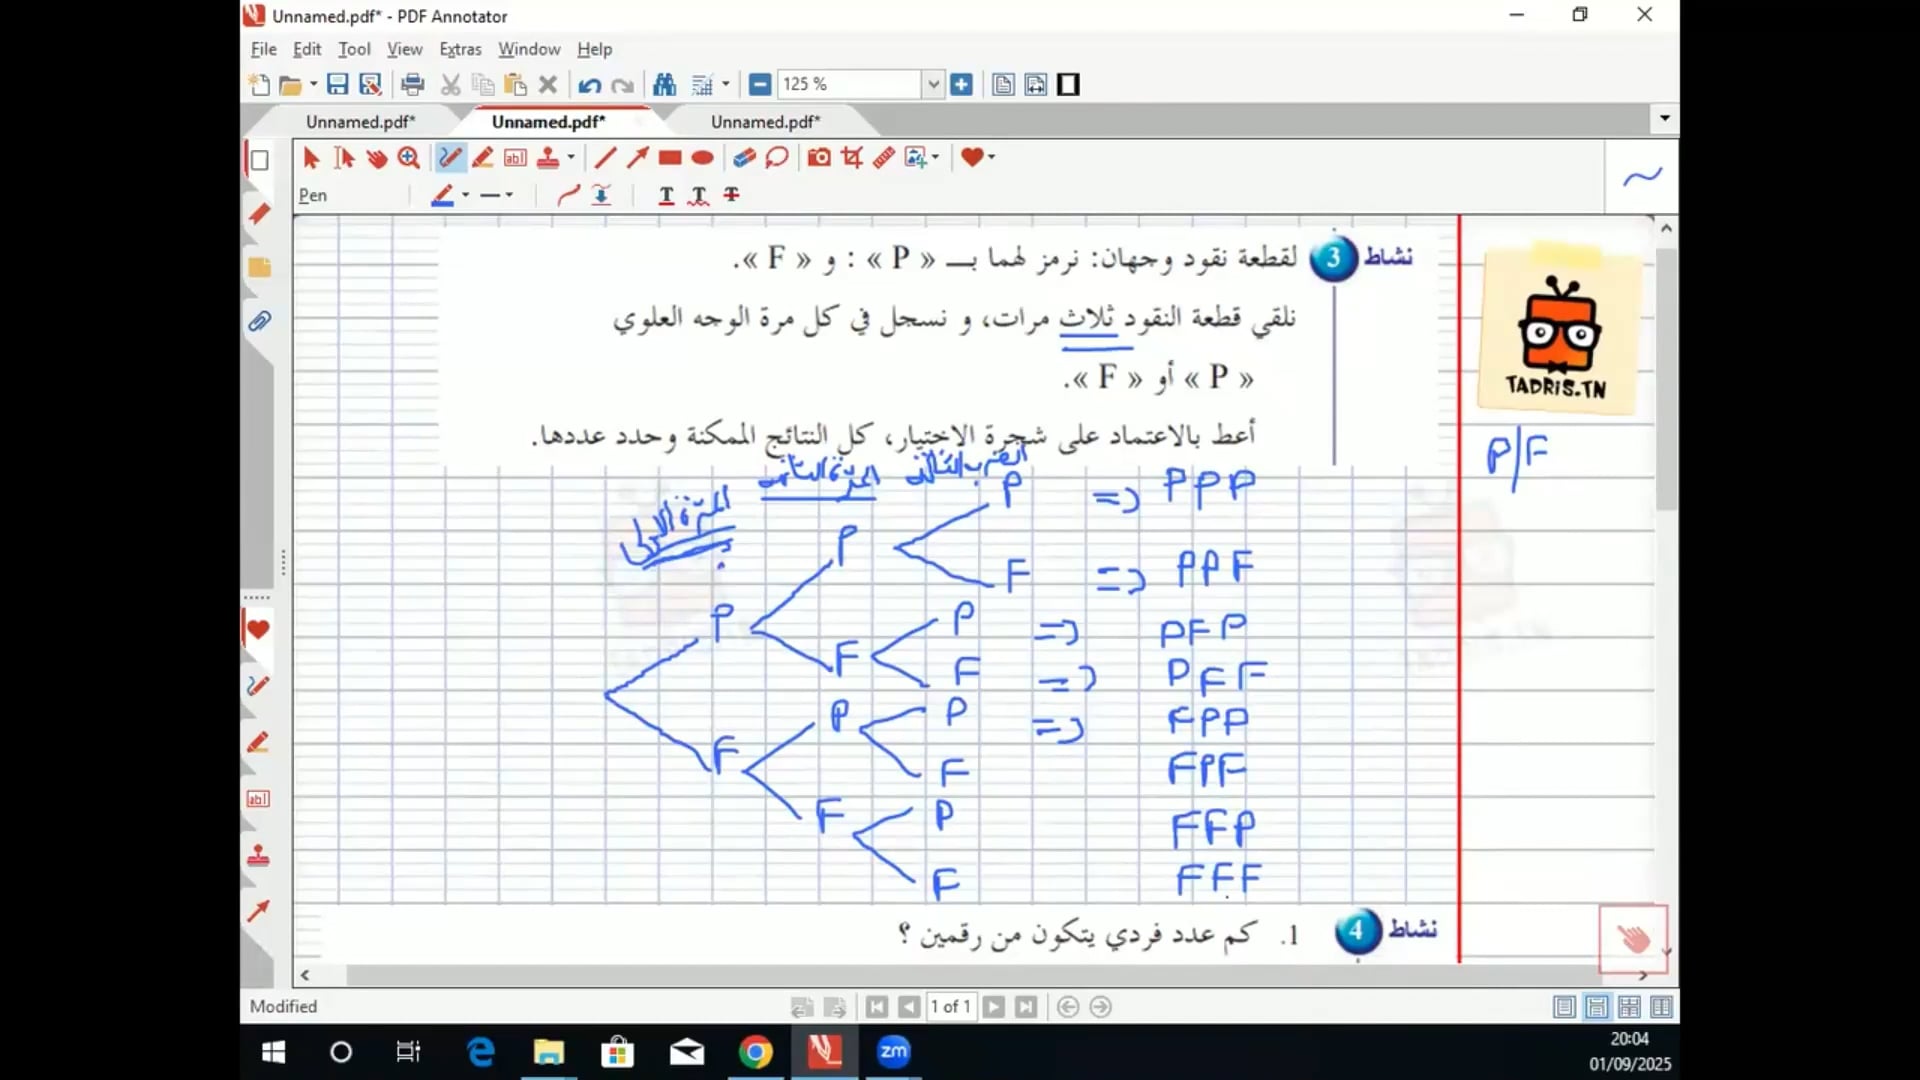 Unnamed.pdf* - PDF Annotator
File Edit Tool View Extras Window Help
125 %
Unnamed.pdf* Unnamed.pdf* Unnamed.pdf*
Pen
نشاط 3 لقطعة نقود وجهان: نرمز لهما بـ « P » : و « F ».
نلقي قطعة النقود ثلاث مرات، و نسجل في كل مرة الوجه العلوي
« P » أو « F ».
أعط بالاعتماد على شجرة الاختيار، كل النتائج الممكنة وحدد عددها.
TADRIS.TN
P/F
المرة الأولى المرة الثانية
P => PPP
P
F => PPF
P
P => PFP
F
F => PFF
P => FPP
P
F
F FPF
P FFP
F
F FFF
نشاط 4 1. كم عدد فردي يتكون من رقمين ؟
Modified
1 of 1
zm
20:04
01/09/2025